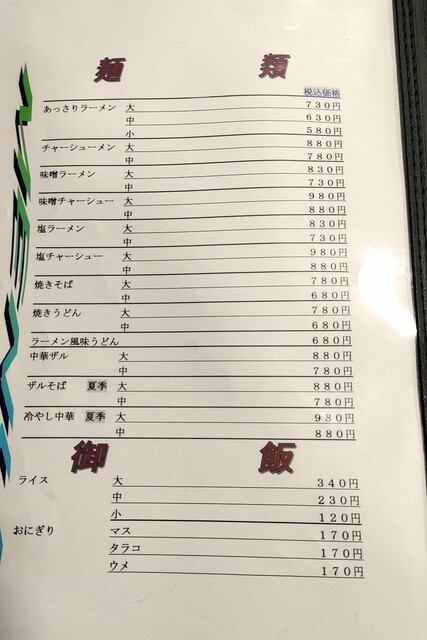 麺 類
税込価格
あっさりラーメン 大 730円
中 630円
小 580円
チャーシューメン 大 880円
中 780円
味噌ラーメン 大 830円
中 730円
味噌チャーシュー 大 980円
中 880円
塩ラーメン 大 830円
中 730円
塩チャーシュー 大 980円
中 880円
焼きそば 大 780円
中 680円
焼きうどん 大 780円
中 680円
ラーメン風味うどん 680円
中華ザル 大 880円
中 780円
ザルそば 夏季 大 880円
中 780円
冷やし中華 夏季 大 980円
中 880円
御 飯
ライス 大 340円
中 230円
小 120円
おにぎり マス 170円
タラコ 170円
ウメ 170円